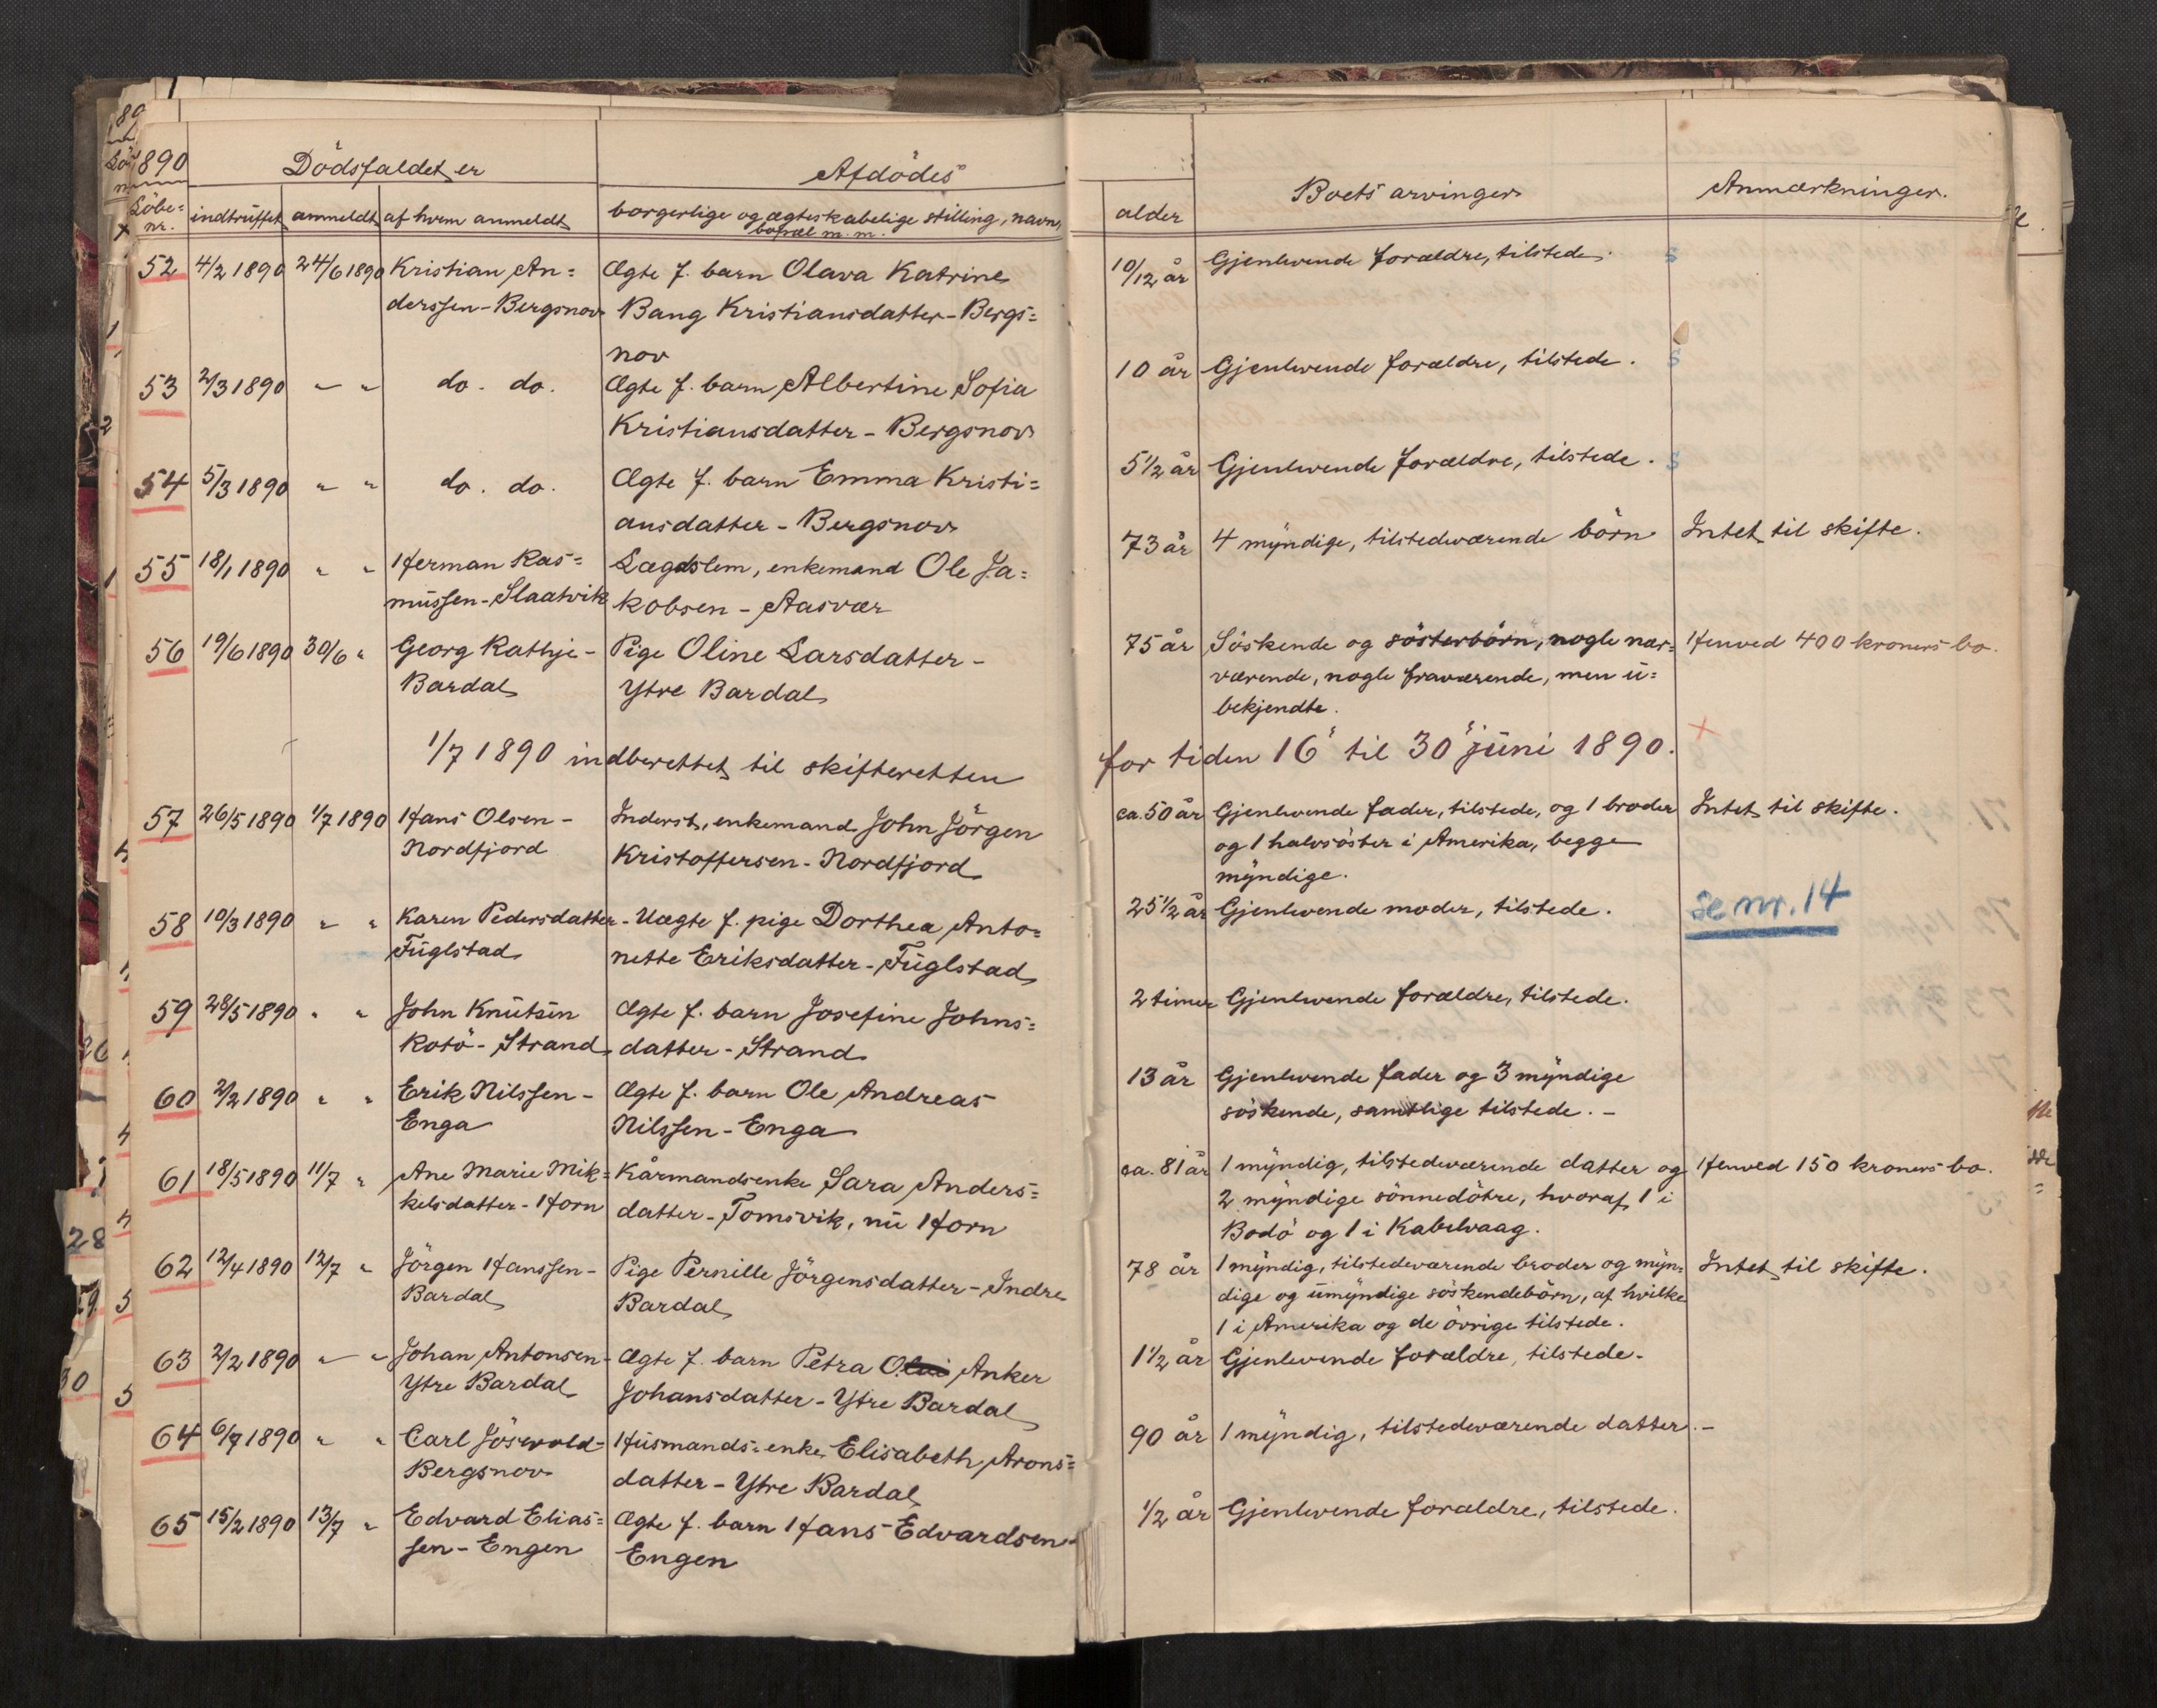 1890
Dödsfaldet er
Afdödes
Löbe=
nr.
indtruffet
anmeldt
af hvem anmeldt
borgerlige og ægteskabelige stilling, navn,
bopæl m. m.
alder
Boets arvinger
Anmærkninger.
52 4/2 1890 24/6 1890 Kristian An= Ægte f. barn Olava Katrine 10/12 år Gjenlevende forældre, tilstede. s
derssen - Bergsnov Bang Kristiansdatter - Bergs=
nov
53 2/3 1890 " " do. do. Ægte f. barn Albertine Sofia 10 år Gjenlevende forældre, tilstede. s
Kristiansdatter - Bergsnov
54 5/3 1890 " " do. do. Ægte f. barn Emma Kristi= 5 1/2 år Gjenlevende forældre, tilstede. s
ansdatter - Bergsnov
55 18/1 1890 " " Herman Ras= Lægdslem, enkemand Ole Ja= 73 år 4 myndige, tilstedeværende börn Intet til skifte.
mussen - Slaatvik kobsen - Aasvær
56 19/6 1890 30/6 " Georg Rathje - Pige Oline Larsdatter - 75 år Söskende og sösterbörn, nogle nær= Henved 400 kroners bo.
Bardal Ytre Bardal værende, nogle fraværende, men u=
bekjendte.
1/7 1890 indberettet til skifteretten for tiden 16" til 30" juni 1890. x
57 26/5 1890 1/7 1890 Hans Olsen - Inderst, enkemand John Jörgen ca. 50 år Gjenlevende fader, tilstede, og 1 broder Intet til skifte.
Nordfjord Kristoffersen - Nordfjord og 1 halvsöster i Amerika, begge
myndige.
58 10/3 1890 " " Karen Pedersdatter - Uægte f. pige Dorthea Anto= 25 1/2 år Gjenlevende moder, tilstede. se nr. 14
Fuglstad nette Eriksdatter - Fuglstad
59 28/5 1890 " " John Knutsen Ægte f. barn Josefine Johns= 2 timer Gjenlevende forældre, tilstede.
Kotö - Strand datter - Strand
60 2/2 1890 " " Erik Nilssen - Ægte f. barn Ole Andreas 13 år Gjenlevende fader og 3 myndige
Enga Nilssen - Enga söskende, samtlige tilstede. -
61 18/5 1890 11/7 " Ane Marie Mik= Kårmandsenke Sara Anders= ca. 81 år 1 myndig, tilstedeværende datter og Henved 150 kroners bo.
kelsdatter - Horn datter - Tomsvik, nu Horn 2 myndige sönnedötre, hvoraf 1 i
Bodö og 1 i Kabelvaag.
62 12/4 1890 12/7 " Jörgen Hanssen - Pige Pernille Jörgensdatter - Indre 78 år 1 myndig, tilstedeværende broder og myn= Intet til skifte.
Bardal Bardal dige og umyndige söskendebörn, af hvilke
1 i Amerika og de övrige tilstede.
63 2/2 1890 " " Johan Antonsen - Ægte f. barn Petra Anker 1 1/2 år Gjenlevende forældre, tilstede.
Ytre Bardal Johansdatter - Ytre Bardal
64 6/7 1890 " " Carl Jösevold - Husmands-enke Elisabeth Arons= 90 år 1 myndig, tilstedeværende datter. -
Bergsnov datter - Ytre Bardal
65 15/2 1890 13/7 " Edvard Elias= Ægte f. barn Hans Edvardsen - 1/2 år Gjenlevende forældre, tilstede.
sen - Engen Engen